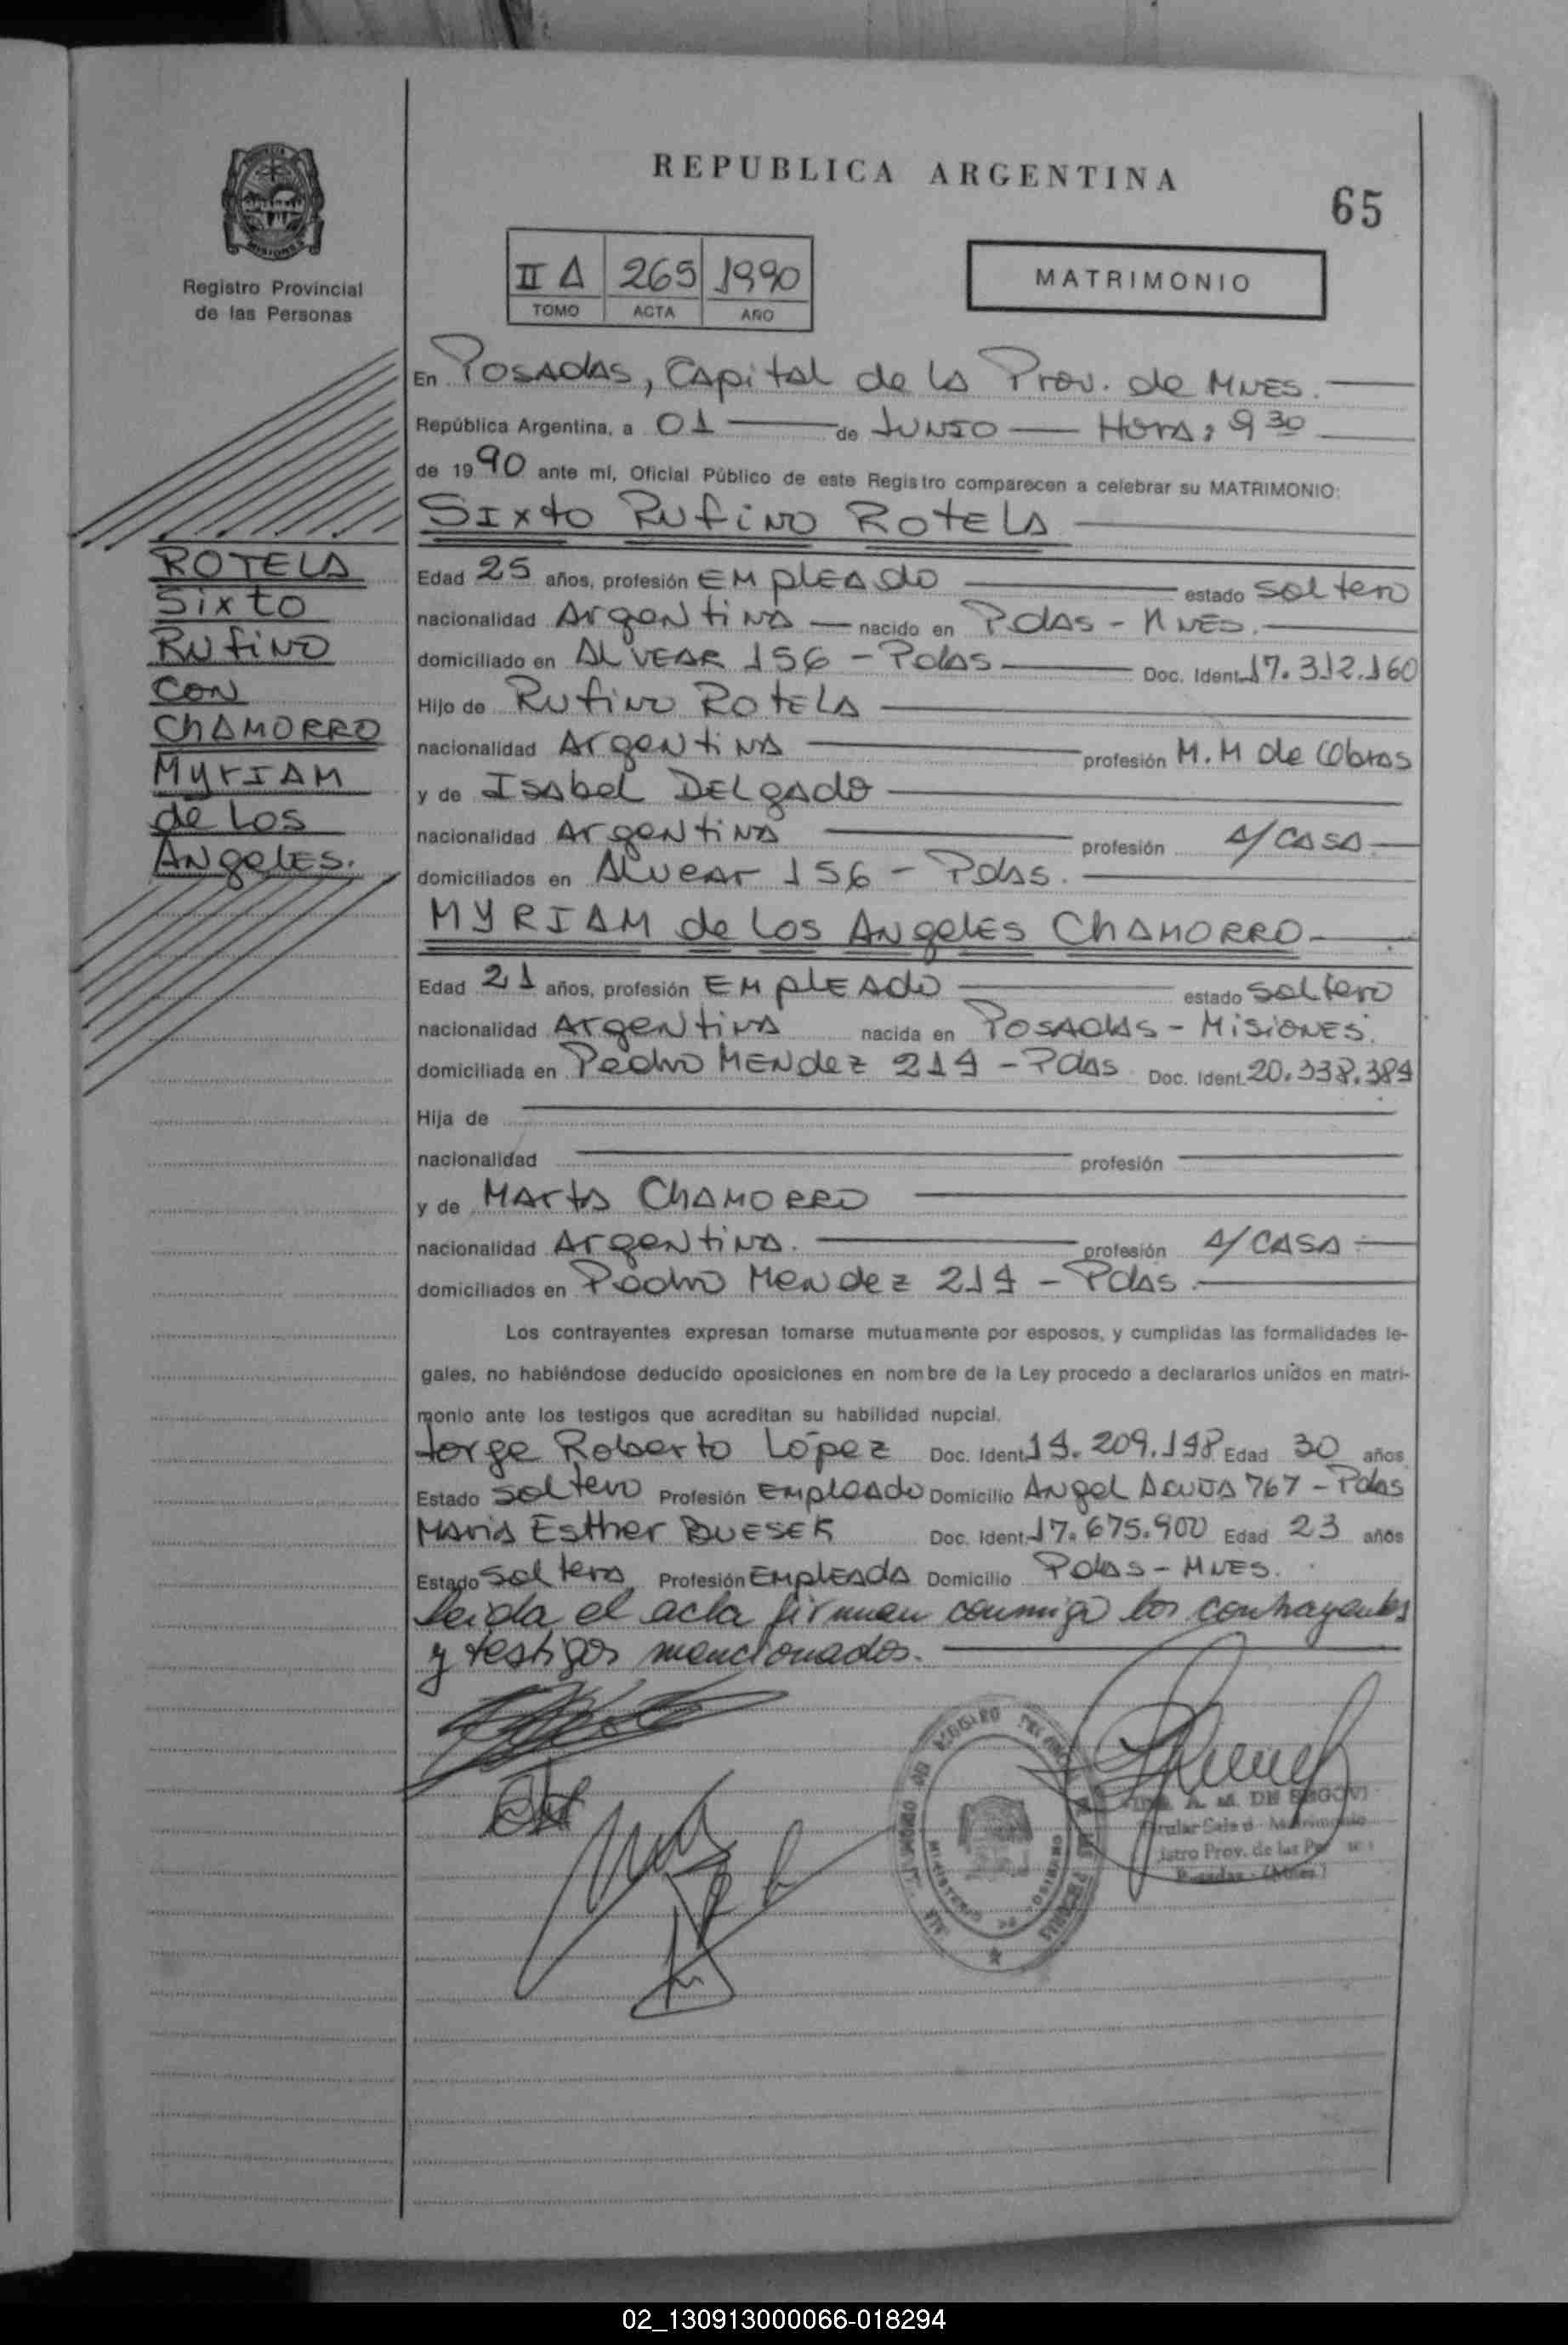 REPUBLICA ARGENTINA
65
Registro Provincial
de las Personas
II A 265 1990
TOMO ACTA AÑO
MATRIMONIO
En Posadas, Capital de la Prov. de Mnes.
República Argentina, a 01 de Junio Hora: 9 30
de 1990 ante mí, Oficial Público de este Registro comparecen a celebrar su MATRIMONIO:
Sixto Rufino Rotela
ROTELA
Sixto
Rufino
con
Chamorro
Myriam
de los
Angeles.
Edad 25 años, profesión Empleado estado soltero
nacionalidad Argentina nacido en Pdas - Mnes.
domiciliado en Alvear 156 - Pdas Doc. Ident. 17.312.160
Hijo de Rufino Rotela
nacionalidad Argentina profesión M.M de Obras
y de Isabel Delgado
nacionalidad Argentina profesión s/casa
domiciliados en Alvear 156 - Pdas.
Myriam de los Angeles Chamorro
Edad 21 años, profesión Empleado estado soltero
nacionalidad Argentina nacida en Posadas - Misiones.
domiciliada en Pedro Mendez 214 - Pdas Doc. Ident. 20.338.384
Hija de
nacionalidad profesión
y de Marta Chamorro
nacionalidad Argentina. profesión s/casa
domiciliados en Pedro Mendez 214 - Pdas.
Los contrayentes expresan tomarse mutuamente por esposos, y cumplidas las formalidades le-
gales, no habiéndose deducido oposiciones en nombre de la Ley procedo a declararlos unidos en matri-
monio ante los testigos que acreditan su habilidad nupcial.
Jorge Roberto López Doc. Ident. 14.209.198 Edad 30 años
Estado soltero Profesión Empleado Domicilio Angel Acuña 767 - Pdas
Maria Esther Dueser Doc. Ident. 17.675.900 Edad 23 años
Estado soltera Profesión Empleada Domicilio Pdas - Mnes.
Leida el acta firman conmigo los contrayentes
y testigos mencionados.
A. M. DE SEGOVI
Prov. de las
Posadas - (Mnes.)
02_130913000066-018294